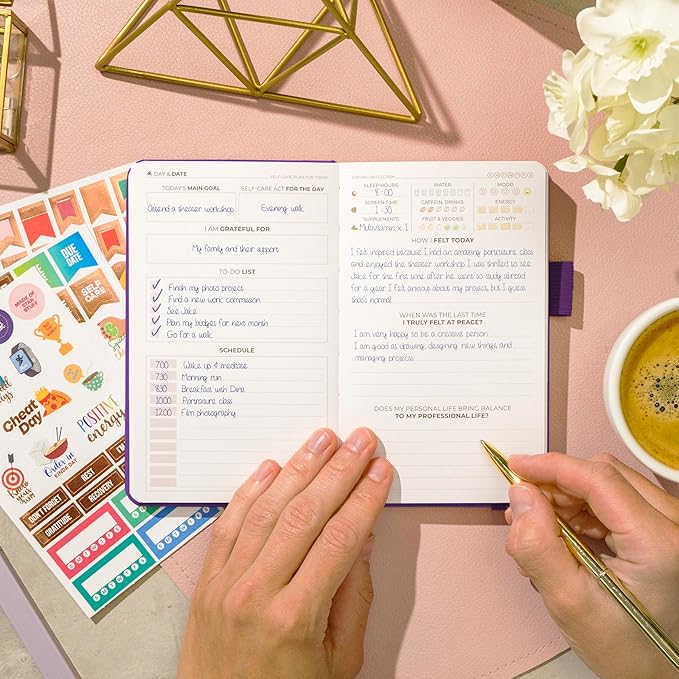 DAY & DATE
SELF-CARE PLAN FOR TODAY
TODAY'S MAIN GOAL
SELF-CARE ACT FOR THE DAY
Attend a theater workshop
Evening walk
I AM GRATEFUL FOR
My family and their support
TO-DO LIST
Finish my photo project
Find a new work commission
See Jake
Plan my budges for next month
Go for a walk
SCHEDULE
7:00 Wake up & medicase
7:30 Morning run
8:30 Breakfast with Dina
10:00 Portraiture class
12:00 Film photography
EVENING REFLECTION
SLEEP HOURS
8 : 00
SCREEN TIME
1 : 30
SUPPLEMENTS
Multivitamin x 1
WATER
CAFFEIN. DRINKS
FRUIT & VEGGIES
MOOD
ENERGY
ACTIVITY
HOW I FELT TODAY
I felt inspired because I had an amazing portraiture class
and enjoyed the theater workshop. I was thrilled to see
Jake for the first time after he went to study abroad
for a year. I felt anxious about my project, but I guess
that's normal.
WHEN WAS THE LAST TIME
I TRULY FELT AT PEACE?
I am very happy to be a creative person.
I am good at drawing, designing new things, and
managing projects
DOES MY PERSONAL LIFE BRING BALANCE
TO MY PROFESSIONAL LIFE?
DUE
DATE
SELF
CARE
MADE OF
STAR
STUFF
Cheat
Day
POSITIVE
energy
Order in
KINDA DAY
REST
RECOVERY
DON'T FORGET
GRATITUDE
S M T W T F S
S M T W T F S
S M T W T F S